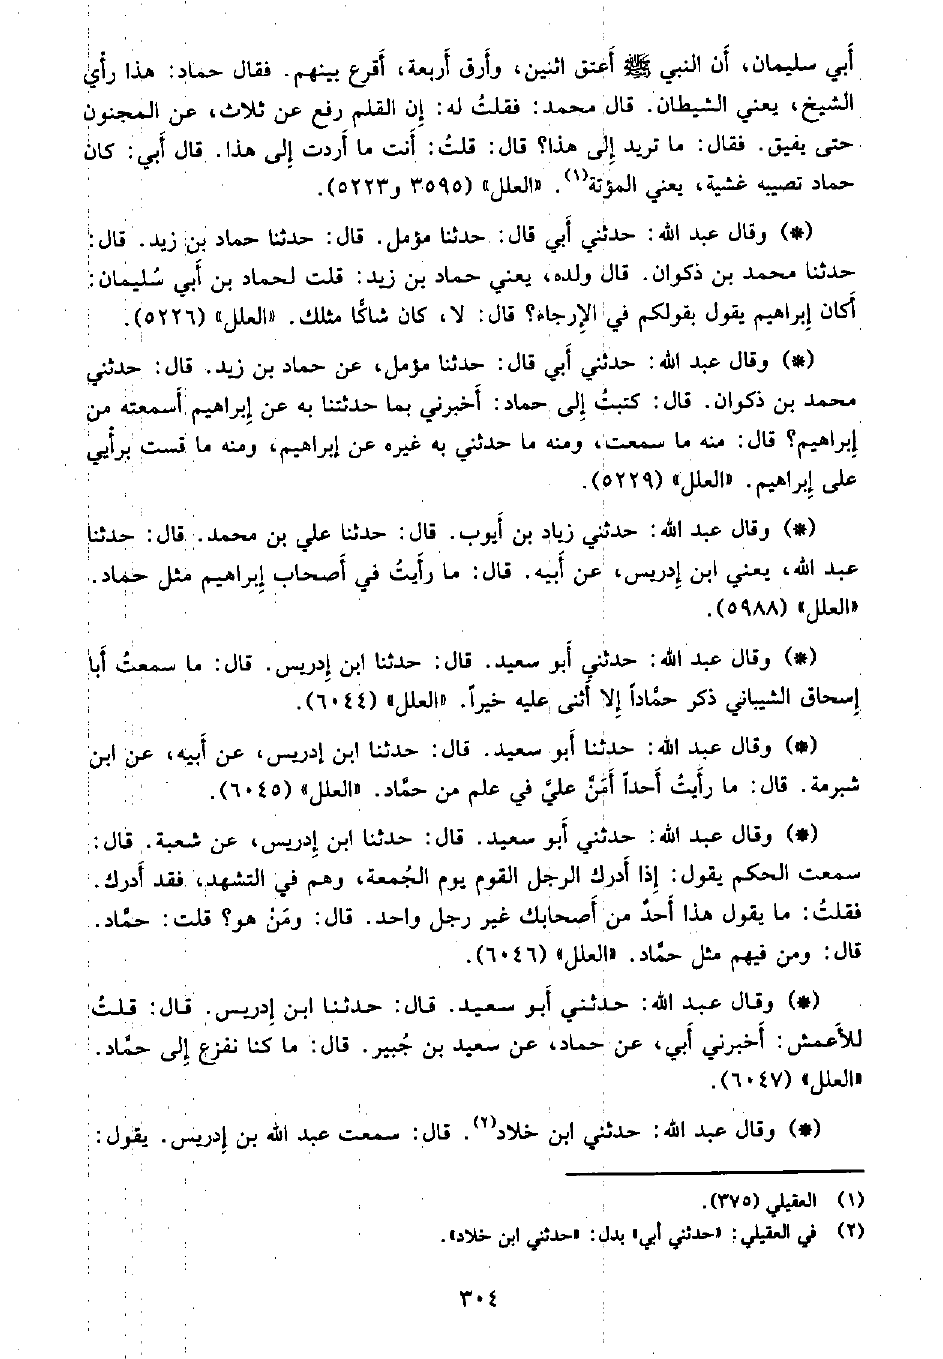 أَبي سليمان، أَن النبي ﷺ أَعتق اثنين، وأَرق أَربعة، أَقرع بينهم. فقال حماد: هذا رأْي
الشيخ، يعني الشيطان. قال محمد: فقلتُ له: إِن القلم رفع عن ثلاث، عن المجنون
حتى يفيق. فقال: ما تريد إِلى هذا؟ قال: قلتُ: أَنت ما أَردت إِلى هذا. قال أَبي: كان
حماد تصيبه غشية، يعني المؤتة(١). «العلل» (٣٥٩٥ و٥٢٢٣).
(*) وقال عبد الله: حدثني أَبي قال: حدثنا مؤمل. قال: حدثنا حماد بن زيد. قال:
حدثنا محمد بن ذكوان. قال ولده، يعني حماد بن زيد: قلت لحماد بن أَبي سُليمان:
أَكان إِبراهيم يقول بقولكم في الإِرجاء؟ قال: لا، كان شاكًّا مثلك. «العلل» (٥٢٢٦).
(*) وقال عبد الله: حدثني أَبي قال: حدثنا مؤمل، عن حماد بن زيد. قال: حدثني
محمد بن ذكوان. قال: كتبتُ إِلى حماد: أَخبرني بما حدثتنا به عن إِبراهيم أَسمعته من
إِبراهيم؟ قال: منه ما سمعت، ومنه ما حدثني به غيره عن إِبراهيم، ومنه ما قست برأْيي
على إِبراهيم. «العلل» (٥٢٢٩).
(*) وقال عبد الله: حدثني زياد بن أَيوب. قال: حدثنا علي بن محمد. قال: حدثنا
عبد الله، يعني ابن إِدريس، عن أَبيه. قال: ما رأَيتُ في أَصحاب إِبراهيم مثل حماد.
«العلل» (٥٩٨٨).
(*) وقال عبد الله: حدثني أَبو سعيد. قال: حدثنا ابن إِدريس. قال: ما سمعتُ أَبا
إِسحاق الشيباني ذكر حمَّاداً إِلا أَثنى عليه خيراً. «العلل» (٦٠٤٤).
(*) وقال عبد الله: حدثنا أَبو سعيد. قال: حدثنا ابن إدريس، عن أَبيه، عن ابن
شبرمة. قال: ما رأَيتُ أَحداً أَمَنَّ عليَّ في علم من حمَّاد. «العلل» (٦٠٤٥).
(*) وقال عبد الله: حدثني أَبو سعيد. قال: حدثنا ابن إِدريس، عن شعبة. قال:
سمعت الحكم يقول: إِذا أَدرك الرجل القوم يوم الجُمعة، وهم في التشهد، فقد أَدرك.
فقلتُ: ما يقول هذا أَحدٌ من أَصحابك غير رجل واحد. قال: ومَنْ هو؟ قلت: حمَّاد.
قال: ومن فيهم مثل حمَّاد. «العلل» (٦٠٤٦).
(*) وقال عبد الله: حدثني أَبو سعيد. قال: حدثنا ابن إِدريس. قال: قلتُ
للأَعمش: أَخبرني أَبي، عن حماد، عن سعيد بن جُبير. قال: ما كنا نفزع إِلى حمَّاد.
«العلل» (٦٠٤٧).
(*) وقال عبد الله: حدثني ابن خلاد(٢). قال: سمعت عبد الله بن إِدريس. يقول:
(١) العقيلي (٣٧٥).
(٢) في العقيلي: «حدثني أبي» بدل: «حدثني ابن خلاد».
٣٠٤